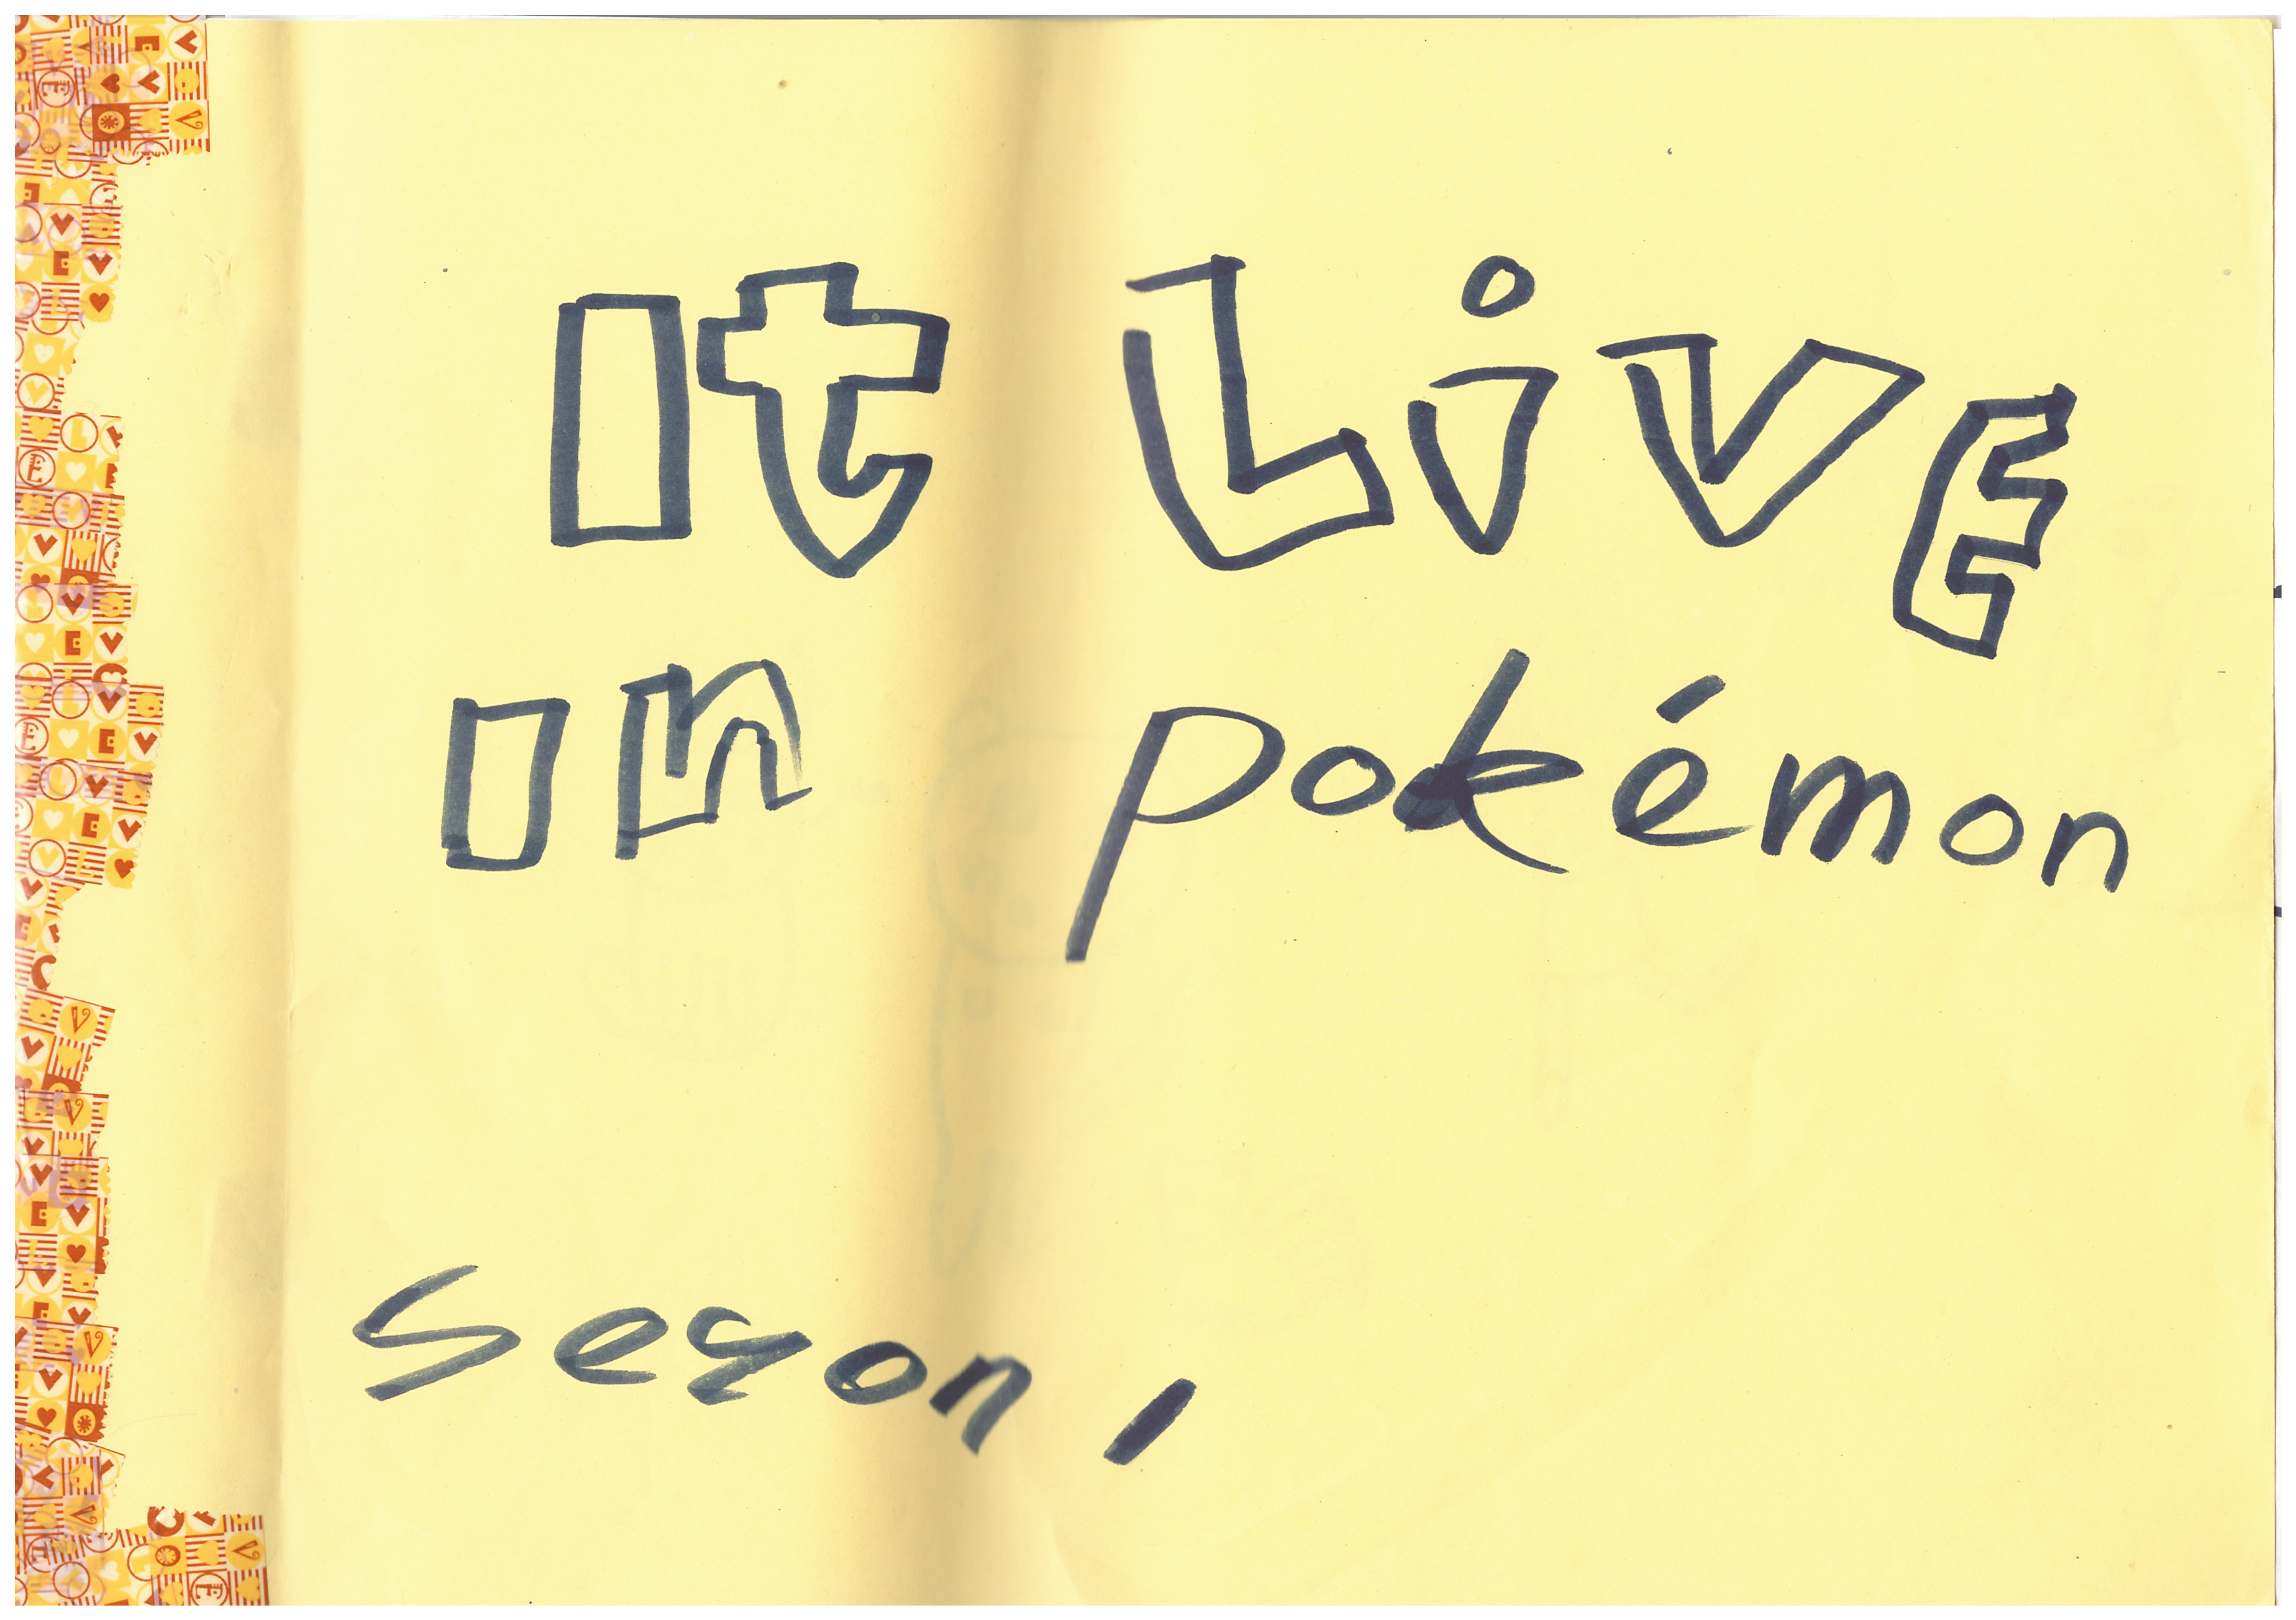 It LivE
In pokémon
seson 1